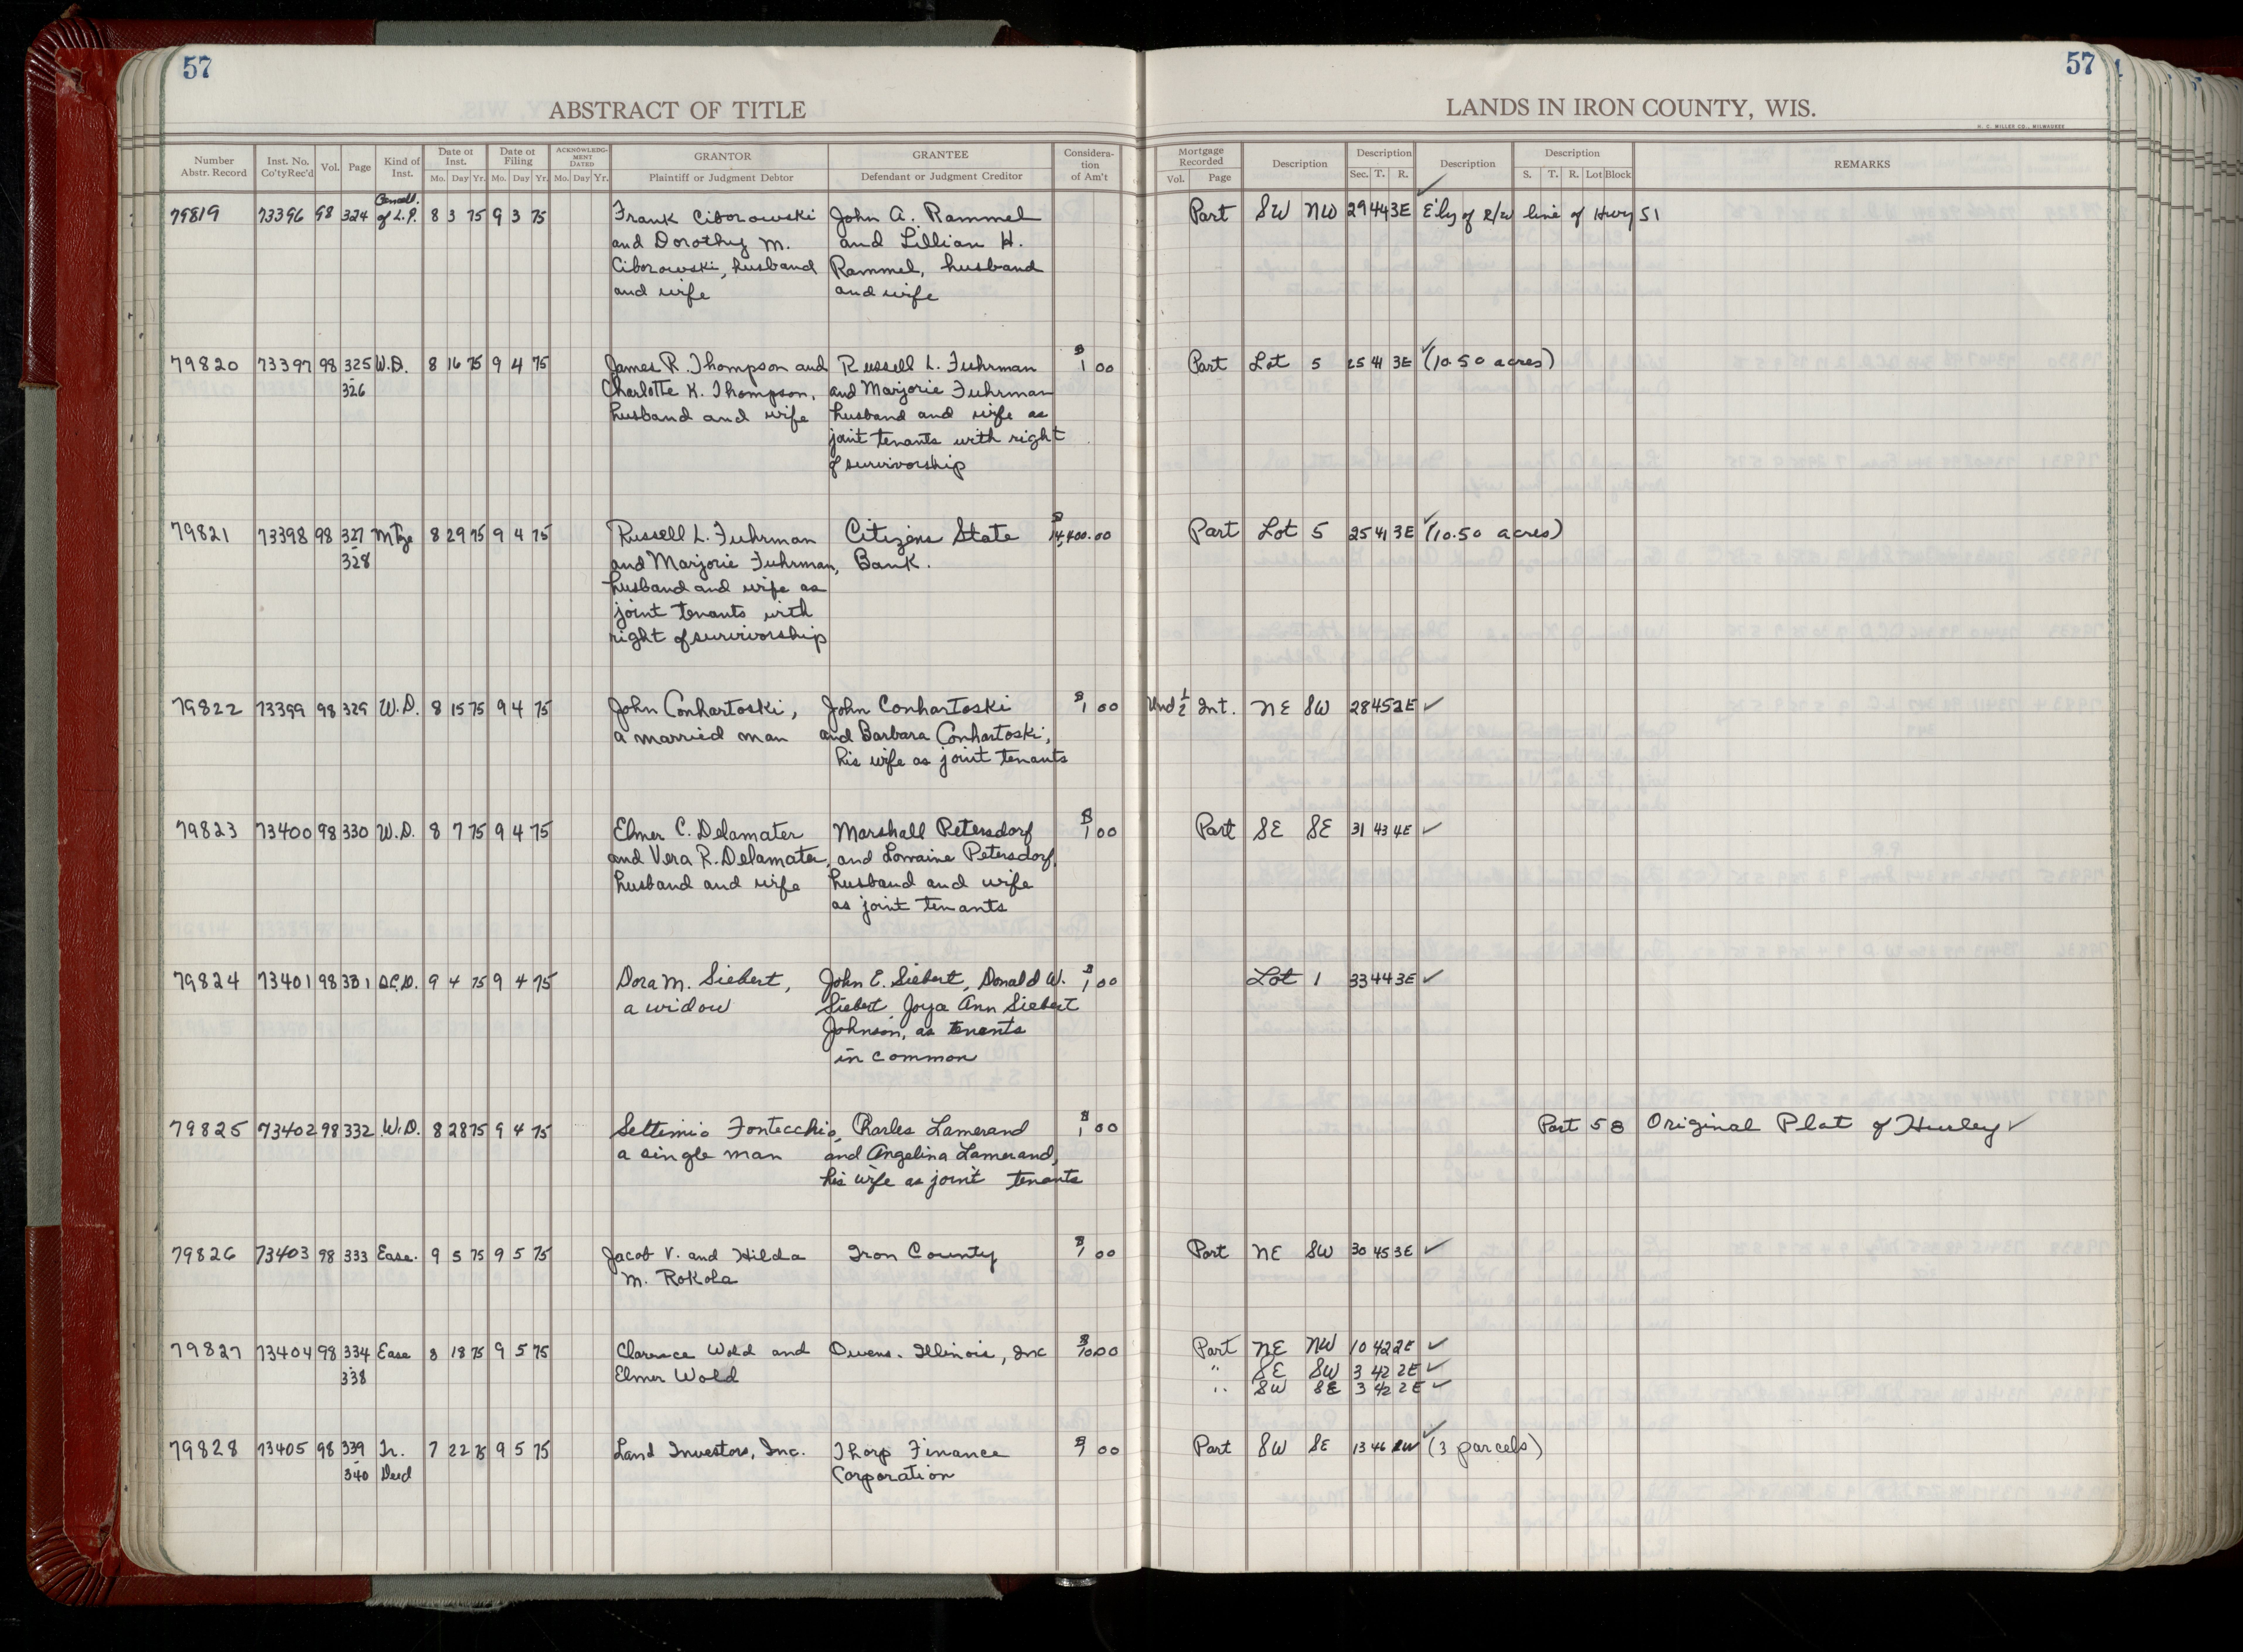 57
57
ABSTRACT OF TITLE
LANDS IN IRON COUNTY, WIS.
H. C. MILLER CO., MILWAUKEE
Number Abstr. Record
Inst. No. Co'ty Rec'd
Vol.
Page
Kind of Inst.
Date of Inst.
Mo. Day Yr.
Date of Filing
Mo. Day Yr.
ACKNOWLEDGMENT DATED
Mo. Day Yr.
GRANTOR
Plaintiff or Judgment Debtor
GRANTEE
Defendant or Judgment Creditor
Consideration of Am't
Mortgage Recorded
Vol. Page
Description
Description
Sec. T. R.
Description
Description
S. T. R. Lot Block
REMARKS
79819 73396 98 324 Cancell. of L.P. 8 3 75 9 3 75 Frank Ciborowski John A. Rammel Part SW NW 29 44 3E E'ly of R/W line of Hwy 51
and Dorothy M. and Lillian H.
Ciborowski, husband Rammel, husband
and wife and wife
79820 73397 98 325 W.D. 8 16 75 9 4 75 James R. Thompson and Russell L. Fuhrman $1 00 Part Lot 5 25 41 3E (10.50 acres)
326 Charlotte K. Thompson, and Marjorie Fuhrman
husband and wife husband and wife as
joint tenants with right
of survivorship
79821 73398 98 327 Mtge 8 29 75 9 4 75 Russell L. Fuhrman Citizens State $14,400.00 Part Lot 5 25 41 3E (10.50 acres)
328 and Marjorie Fuhrman, Bank.
husband and wife as
joint tenants with
right of survivorship
79822 73399 98 329 W.D. 8 15 75 9 4 75 John Conhartoski, John Conhartoski $1 00 Und 1/2 Int. NE SW 28 45 2E
a married man and Barbara Conhartoski,
his wife as joint tenants
79823 73400 98 330 W.D. 8 7 75 9 4 75 Elmer C. Delamater Marshall Petersdorf $1 00 Part SE SE 31 43 4E
and Vera R. Delamater, and Lorraine Petersdorf,
husband and wife husband and wife
as joint tenants
79824 73401 98 331 Q.C.D. 9 4 75 9 4 75 Dora M. Siebert, John E. Siebert, Donald W. $1 00 Lot 1 33 44 3E
a widow Siebert, Joya Ann Siebert
Johnson, as tenants
in common
79825 73402 98 332 W.D. 8 28 75 9 4 75 Settimio Fontecchio, Charles Lamerand $1 00 Part 5 8 Original Plat of Hurley
a single man and Angelina Lamerand,
his wife as joint tenants
79826 73403 98 333 Ease. 9 5 75 9 5 75 Jacob V. and Hilda Iron County $1 00 Part NE SW 30 45 3E
M. Rokola
79827 73404 98 334 Ease 8 18 75 9 5 75 Clarence Wold and Owens-Illinois, Inc $10.00 Part NE NW 10 42 2E
338 Elmer Wold " SE SW 3 42 2E
" SW SE 3 42 2E
79828 73405 98 339 Tr. 7 22 75 9 5 75 Land Investors, Inc. Thorp Finance $1 00 Part SW SE 13 46 (3 parcels)
340 Deed Corporation